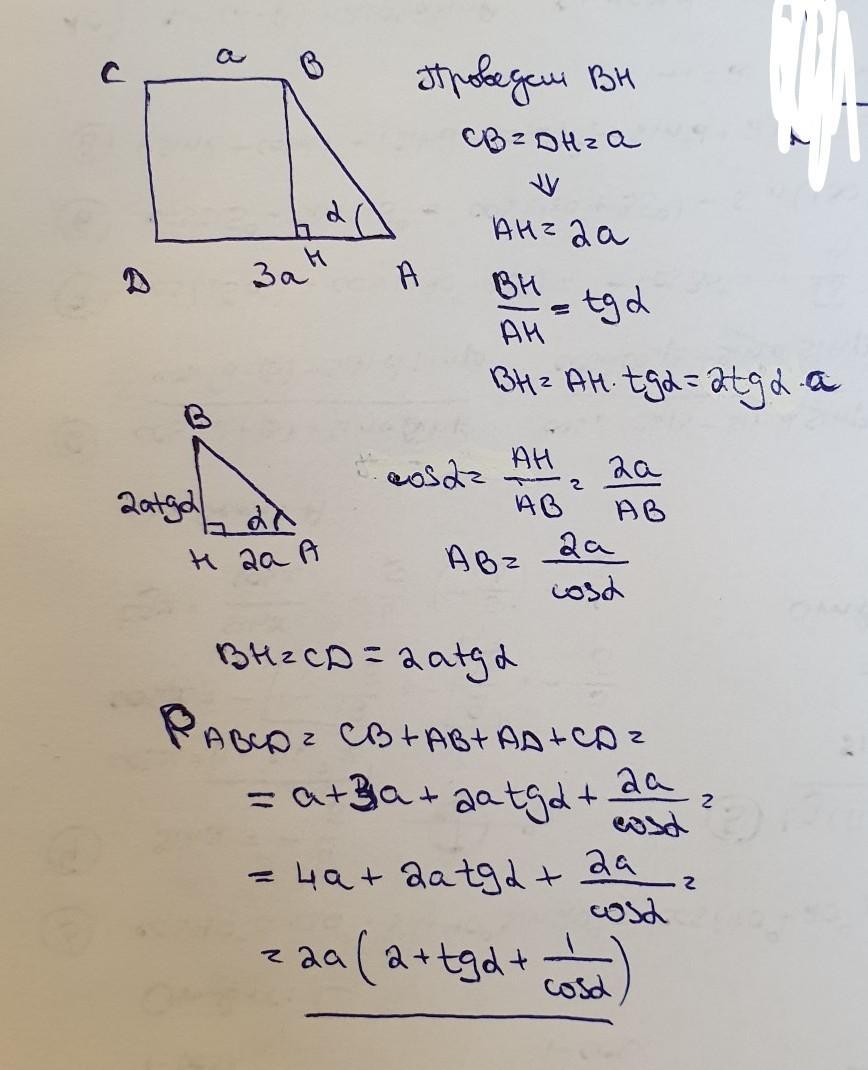 a
C B
Проведем BH
CB = DH = a
⇓
AH = 2a
α
H
D 3a A
BH/AH = tgα
BH = AH · tgα = 2tgα · a
B
2atgα α
H 2a A
cosα = AH/AB = 2a/AB
AB = 2a/cosα
BH = CD = 2atgα
P ABCD = CB + AB + AD + CD =
= a + 3a + 2atgα + 2a/cosα =
= 4a + 2atgα + 2a/cosα =
= 2a(2 + tgα + 1/cosα)